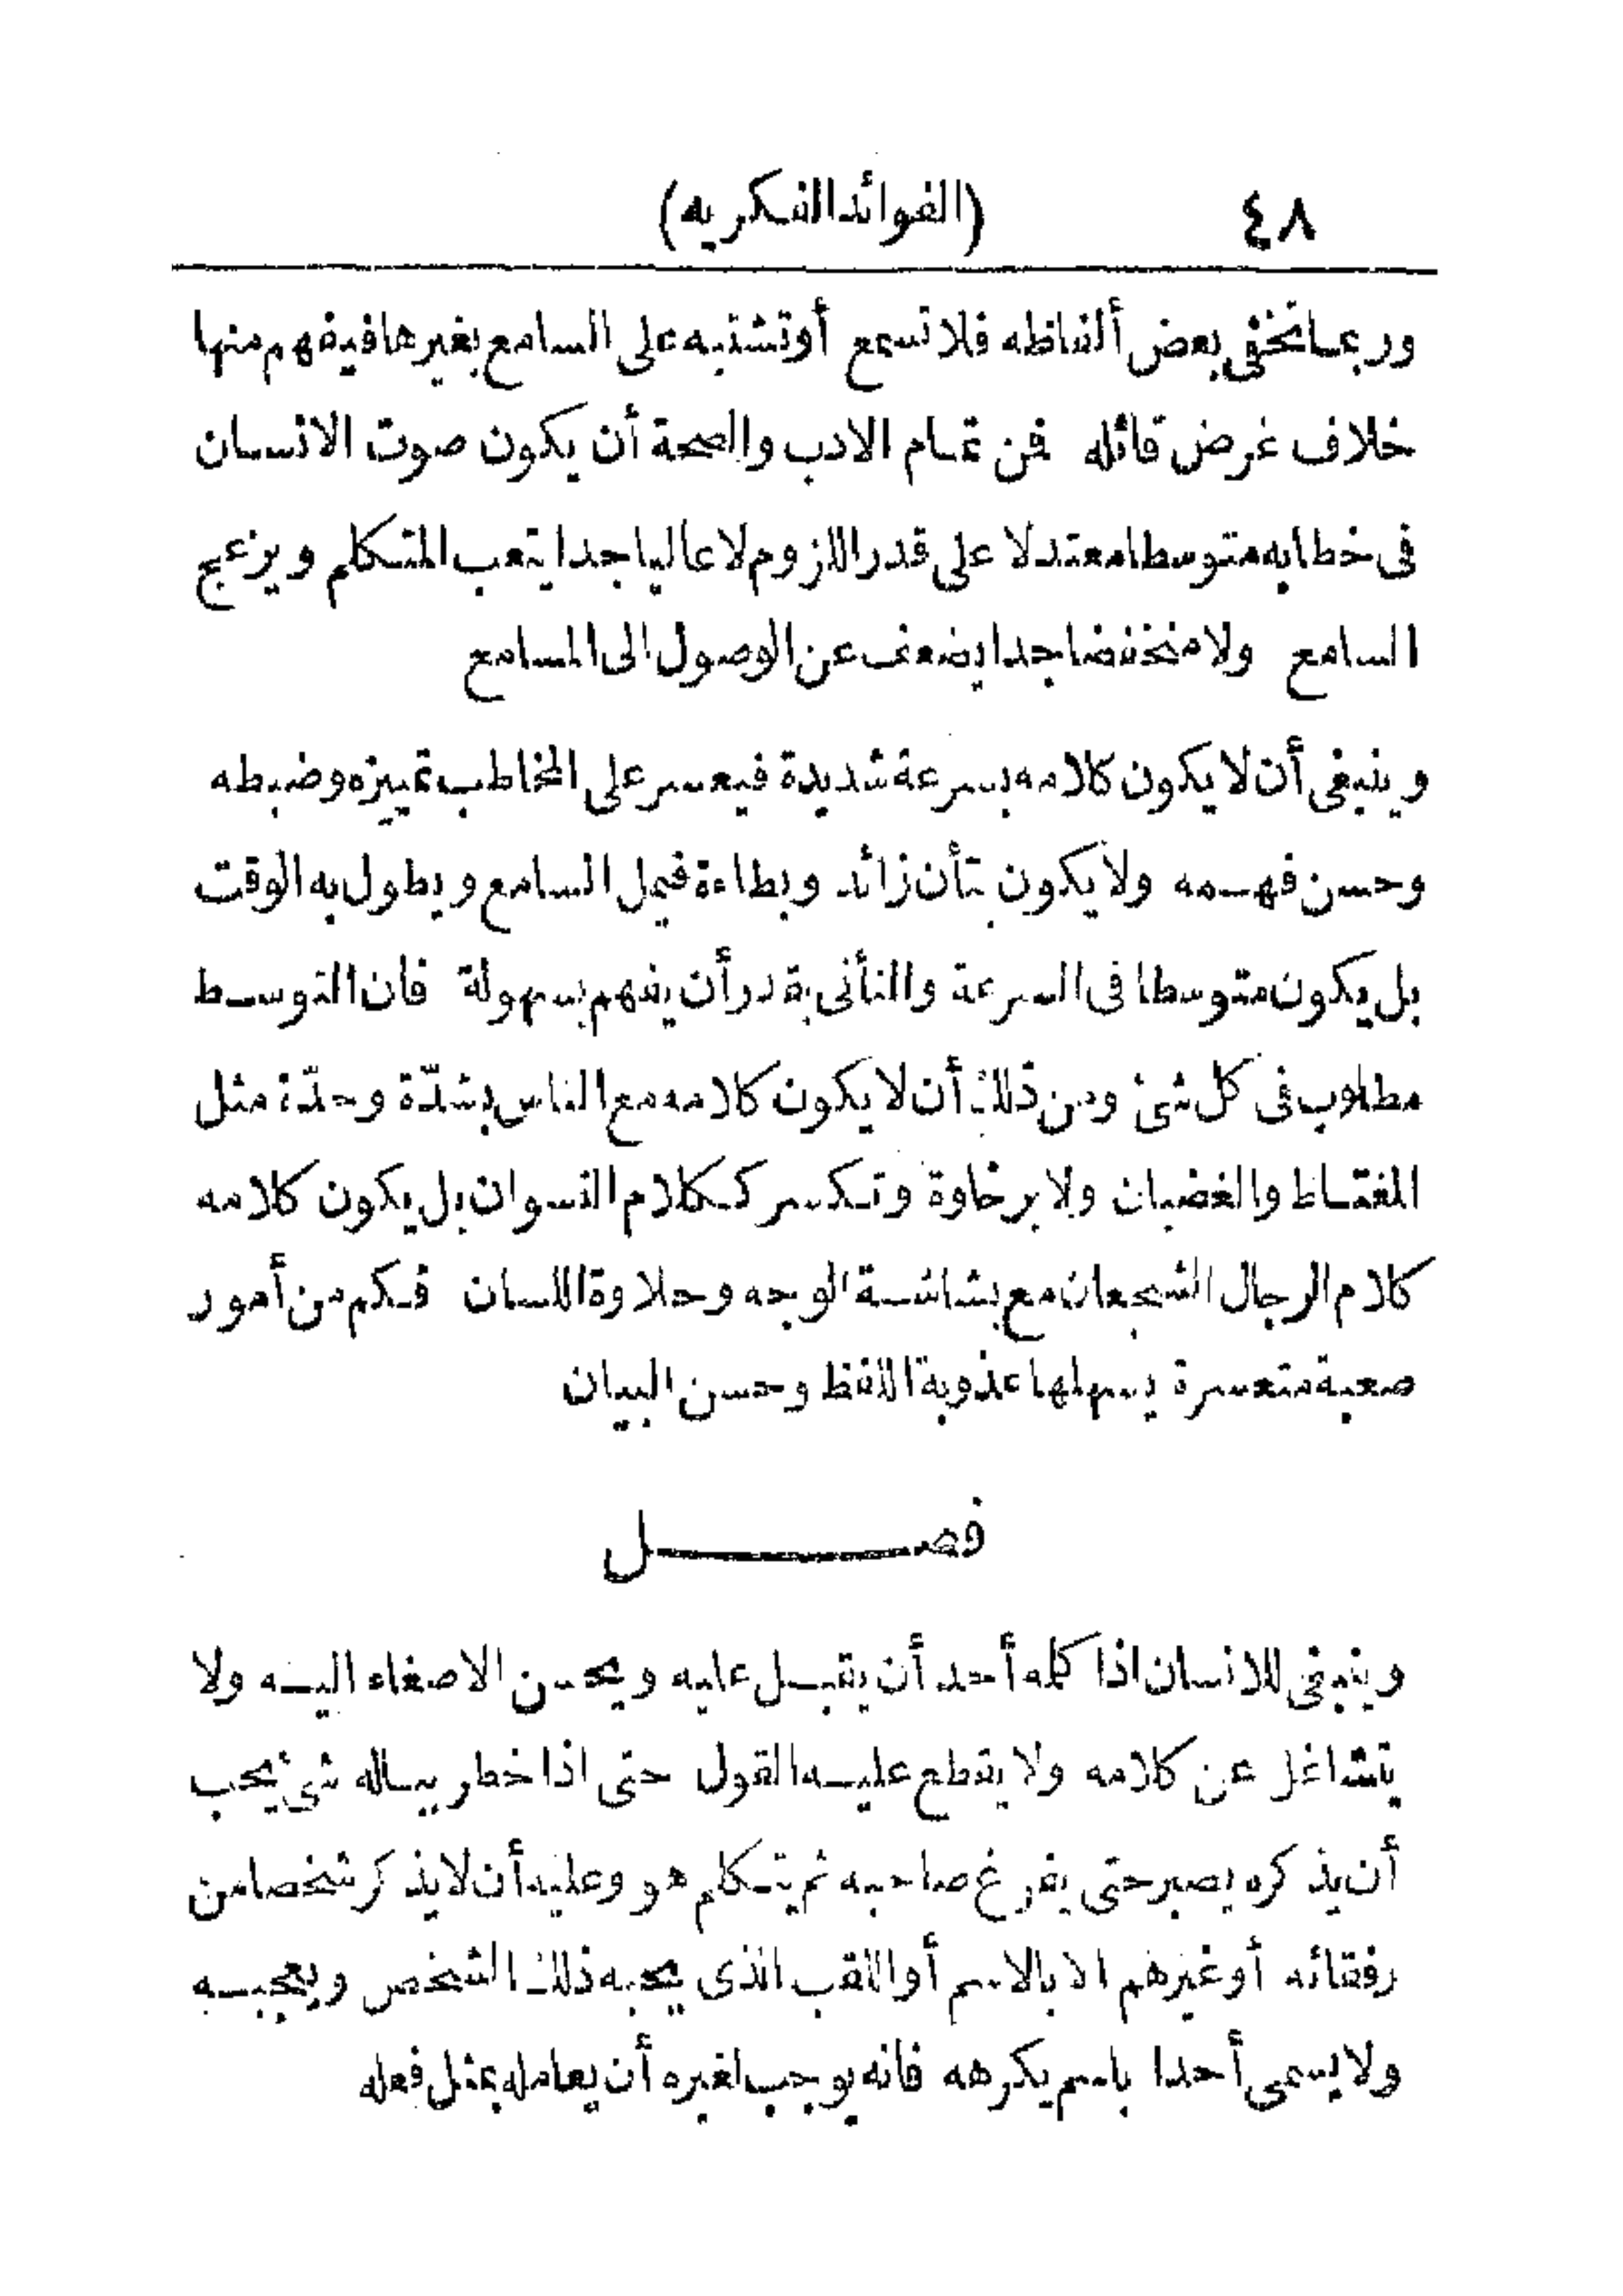 ٤٨ (الفوائد الفكريه)
وربما تخفى بعض ألفاظه فلا تسمع أو تشتبه على السامع بغيرها فيفهم منها
خلاف غرض قائله فمن تمام الادب والصحة أن يكون صوت الانسان
فى خطابه متوسطا معتدلا على قدر اللزوم لا عاليا جدا يتعب المتكلم ويزعج
السامع ولا منخفضا جدا يضعف عن الوصول الى المسامع
وينبغى أن لا يكون كلامه بسرعة شديدة فيعسر على المخاطب تمييزه وضبطه
وحسن فهمه ولا يكون بتأن زائد وبطاءة فيمل السامع ويطول به الوقت
بل يكون متوسطا فى السرعة والتأنى بقدر أن يفهم بسهولة فان التوسط
مطلوب فى كل شئ ومن ذلك أن لا يكون كلامه مع الناس بشدّة وحدّة مثل
المغتاظ والغضبان ولا برخاوة وتكسر ككلام النسوان بل يكون كلامه
كلام الرجال الشجعان مع بشاشة الوجه وحلاوة اللسان فكم من أمور
صعبة متعسرة يسهلها عذوبة اللفظ وحسن البيان
فصل
وينبغى للانسان اذا كلمه أحد أن يقبل عليه ويحسن الاصغاء اليه ولا
يتشاغل عن كلامه ولا يقطع عليه القول حتى اذا خطر بباله شئ يحب
أن يذكره يصبر حتى يفرغ صاحبه ثم يتكلم هو وعليه أن لا يذكر شخصا من
رفقائه أو غيرهم الا بالاسم أو اللقب الذى يحبه ذلك الشخص ويعجبه
ولا يسمى أحدا باسم يكرهه فانه يوجب لغيره أن يعامله بمثل فعله